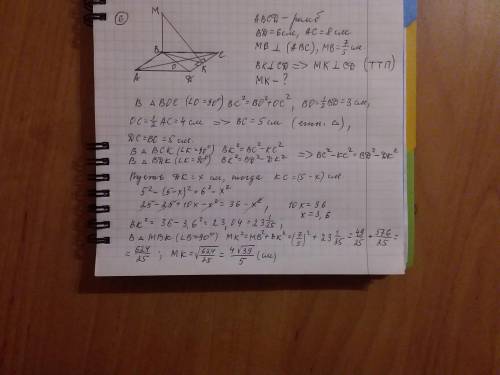 6
M
B
C
A
O
K
D
ABCD - ромб
BD = 6 см, AC = 8 см
MB ⊥ (ABC), MB = 7/5 см
BK ⊥ CD => MK ⊥ CD (ТТП)
MK - ?
В △ BOC (∠O = 90°) BC² = BO² + OC², BO = 1/2 BD = 3 см,
OC = 1/2 AC = 4 см => BC = 5 см (египт. △),
DC = BC = 5 см.
В △ BCK (∠K = 90°) BK² = BC² - KC²
В △ BDK (∠K = 90°) BK² = BD² - DK²
=> BC² - KC² = BD² - DK²
Пусть DK = x см, тогда KC = (5 - x) см
5² - (5 - x)² = 6² - x²
25 - 25 + 10x - x² = 36 - x², 10x = 36
x = 3,6.
BK² = 36 - 3,6² = 23,04 = 23 1/25,
В △ MBK (∠B = 90°) MK² = MB² + BK² = (7/5)² + 23 1/25 = 49/25 + 576/25 =
= 624/25 ; MK = √624/25 = 4√39/5 (см)